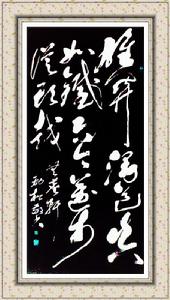 雄關漫道真
如鐵而今邁步
從頭越